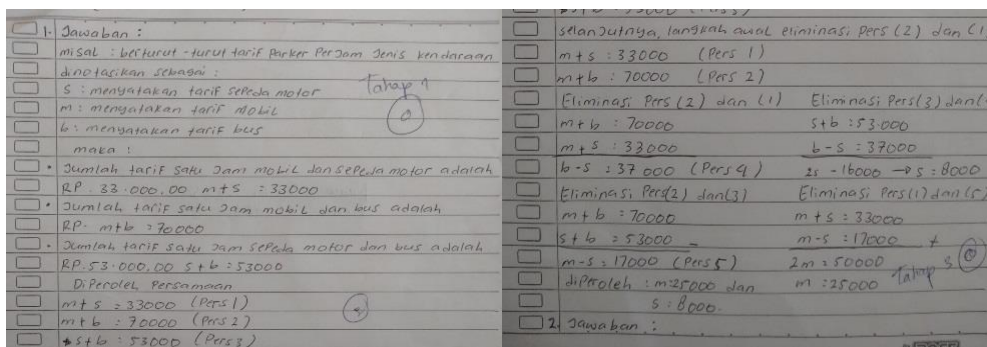 1. Jawaban :
misal : berturut-turut tarif Parker Per Jam Jenis kendaraan
dinotasikan sebagai :
S : menyatakan tarif sepeda motor
Tahap 1
m : menyatakan tarif mobil
b : menyatakan tarif bus
maka :
• Jumlah tarif satu Jam mobil dan sepeda motor adalah
RP. 33.000,00 m+s : 33000
• Jumlah tarif satu Jam mobil dan bus adalah
RP. m+b : 70000
• Jumlah tarif satu Jam sepeda motor dan bus adalah
RP.53.000,00 s+b : 53000
Diperoleh Persamaan
m+s = 33000 (Pers 1)
m+b : 70000 (Pers 2)
s+b : 53000 (Pers 3)
selanJutnya, langkah awal eliminasi pers (2) dan (1
m+s : 33000 (Pers 1)
m+b : 70000 (Pers 2)
Eliminasi Pers (2) dan (1)
m+b : 70000
m+s : 33000
b-s : 37000 (Pers 4)
Eliminasi Pers(3) dan(
s+b : 53.000
b-s : 37000
2s -16000 → s : 8000
Eliminasi Pers(2) dan(3)
m+b : 70000
s+b : 53000 -
m-s : 17000 (Pers 5)
Eliminasi Pers(1) dan (5
m+s : 33000
m-s : 17000 +
2m : 50000
m : 25000
Tahap 3
diperoleh : m:25000 dan
s : 8000.
2. Jawaban :